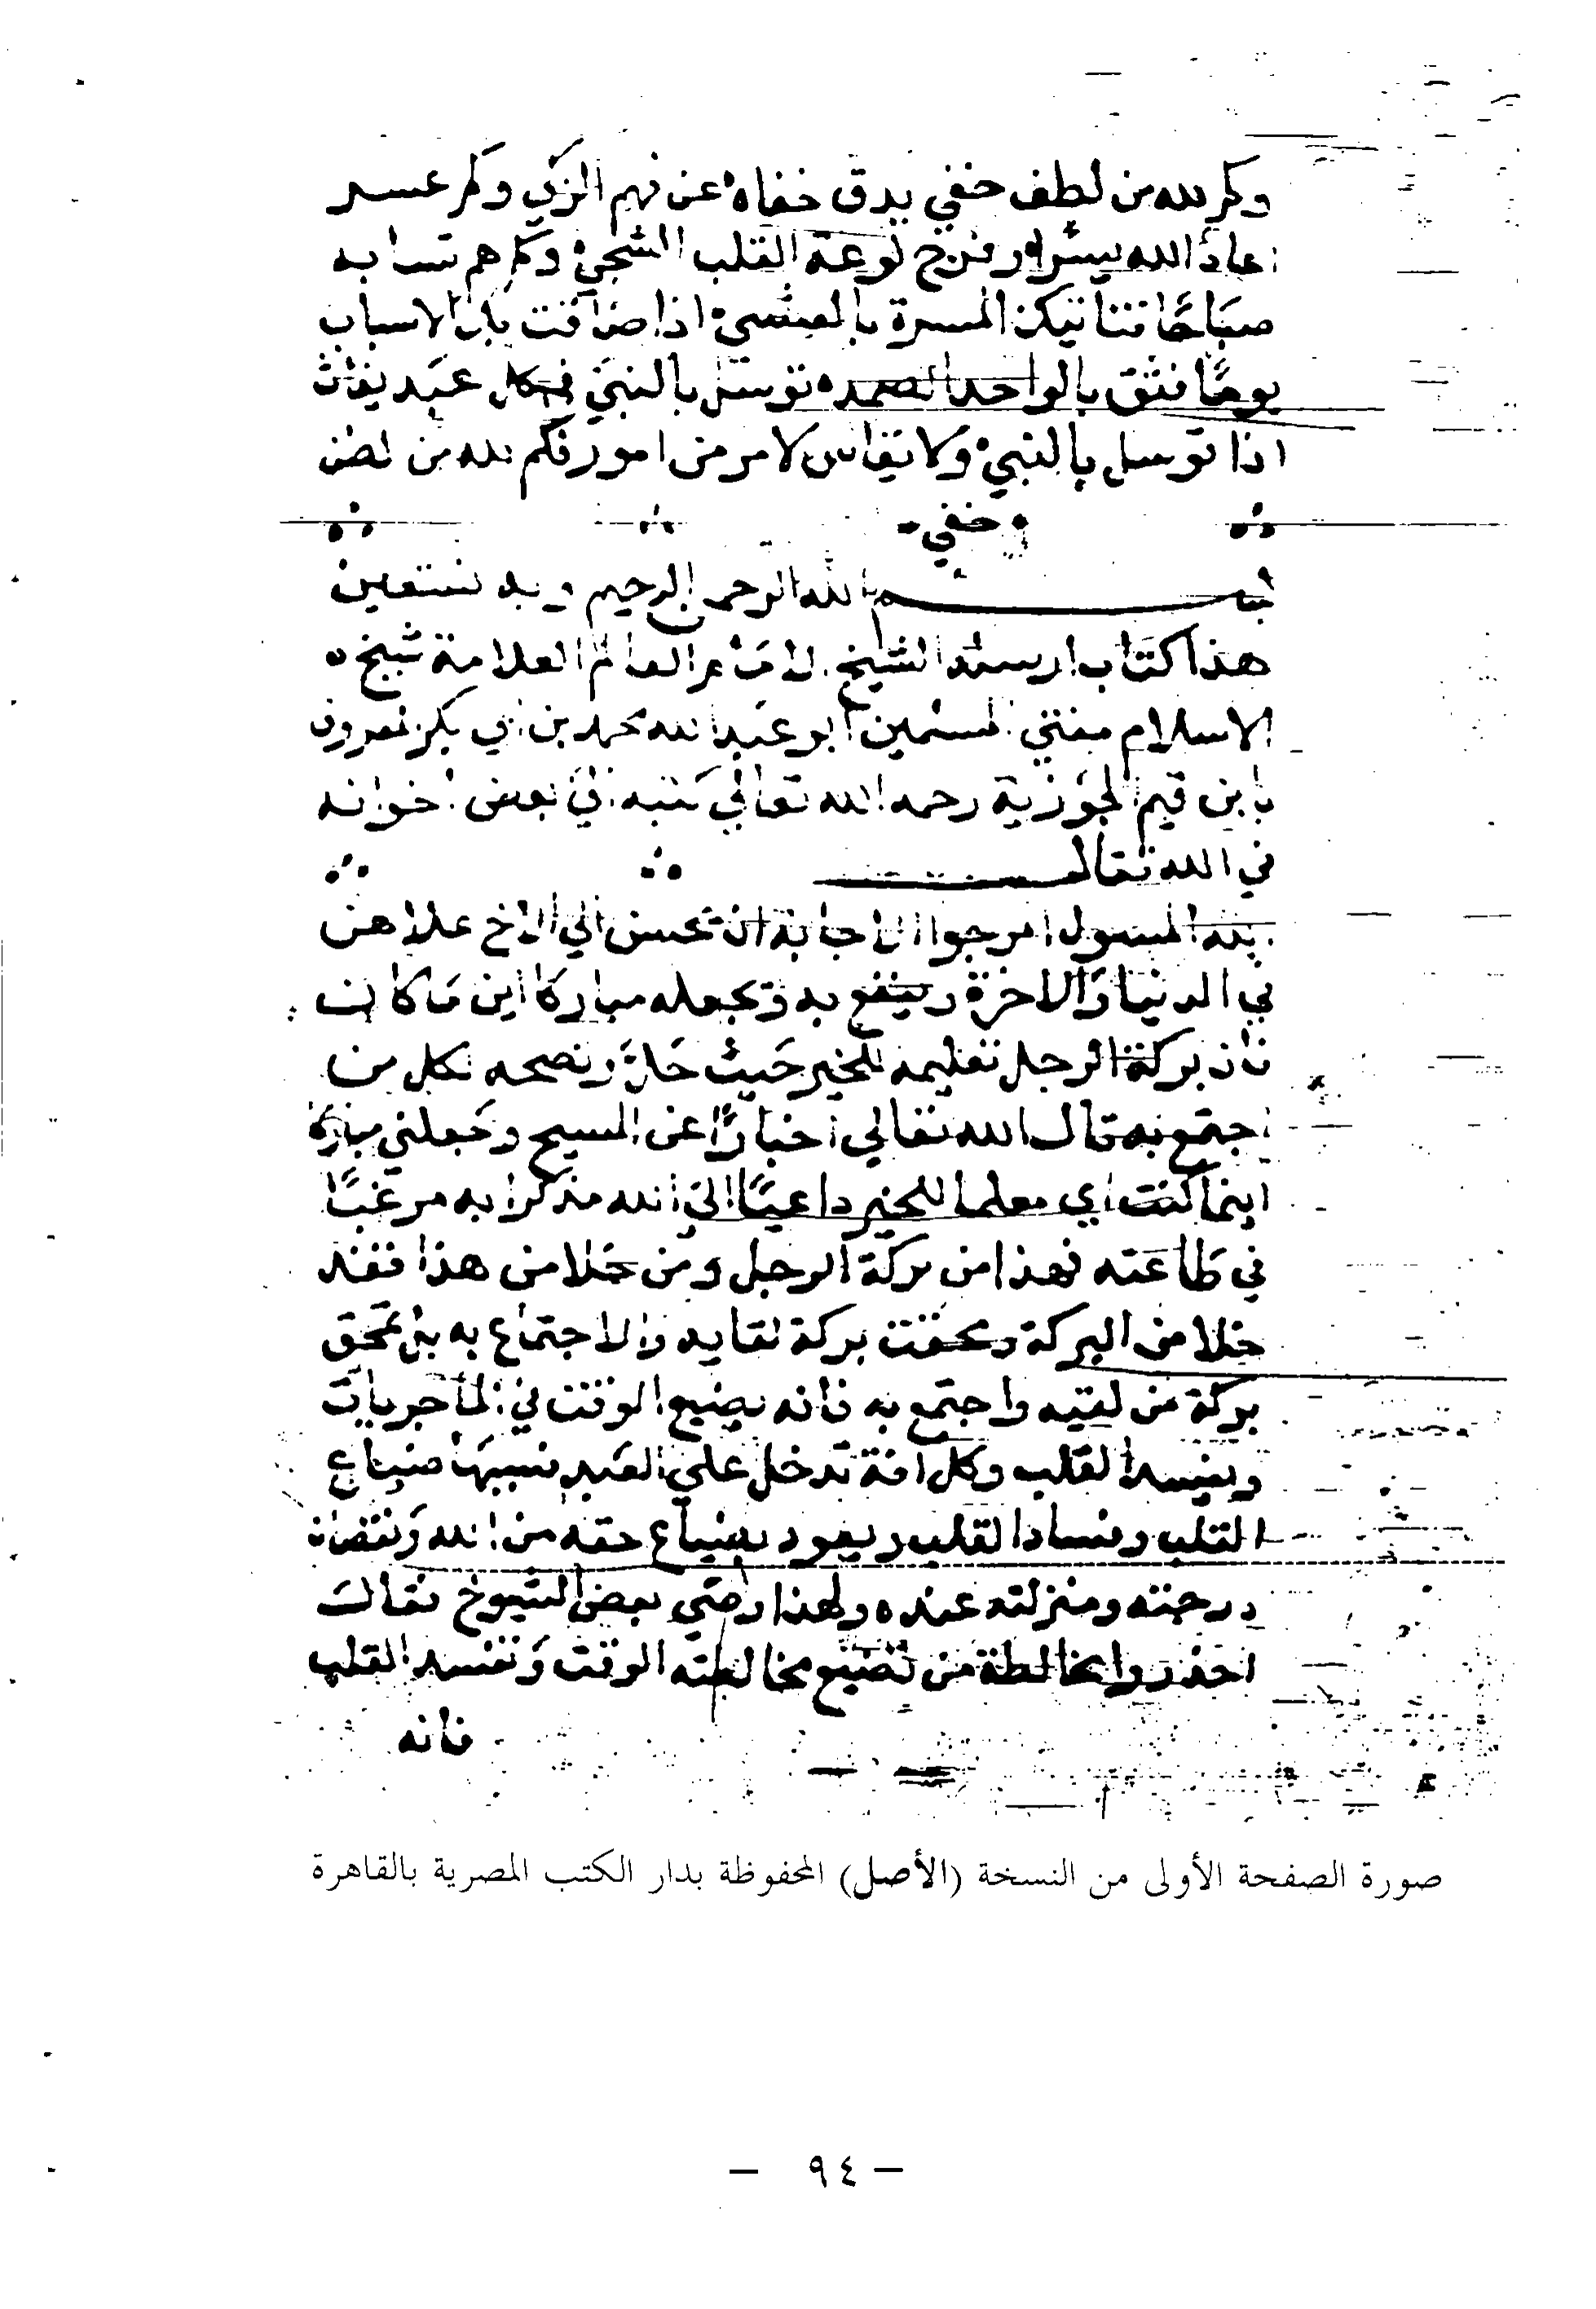 وكم لله من لطف خفي يدق خفاه عن فهم الزكي وكم عسر
اعاد الله يسراه وفرج لوعة القلب الشجي وكم هم تسا به
صباحا فتاتيك المسرة بالعشي اذا ضاقت بك الاسباب
يوما فثق بالواحد الصمده توسل بالنبي فكل عبد يغاث
اذا توسل بالنبي ولا تيأس لامر من امور فكم لله من لطف
خفي
بسم الله الرحمن الرحيم وبه نستعين
هذا كتاب ارسله الشيخ الامام العالم العلامة شيخ
الاسلام مفتي المسلمين ابو عبد الله محمد بن ابي بكر المعروف
بابن قيم الجوزية رحمه الله تعالى كتبه الى بعض اخوانه
في الله تعالى
الله المسول المرجوا الاجابة ان يحسن الي الاخ علا
في الدنيا والاخرة وينفع به ويجعله مباركا اين ما كان
فان بركة الرجل تعليمه للخير حيث حل ونصحه لكل من
اجتمع به قال الله تعالي اخبارا عن المسيح وجعلني مباركا
اينما كنت اي معلما للخير داعيا الي الله مذكرا به مرغبا
في طاعته فهذا من بركة الرجل ومن خلا من هذا فقد
خلا من البركة ومحقت بركة لقايه والاجتماع به بل تمحق
بركة من لقيه واجتمع به فانه يضيع الوقت في الماجريات
ويفسد القلب وكل افة تدخل علي العبد فسببها ضياع
القلب وفساد القلب ويعود بضياع حقه من الله ونقصان
درجته ومنزلته عنده ولهذا وصي بعض الشيوخ فقال
احذروا مخالطة من تضيع مخالطته الوقت وتفسد القلب
فانه
صورة الصفحة الأولى من النسخة (الأصل) المحفوظة بدار الكتب المصرية بالقاهرة
— ٩٤ —